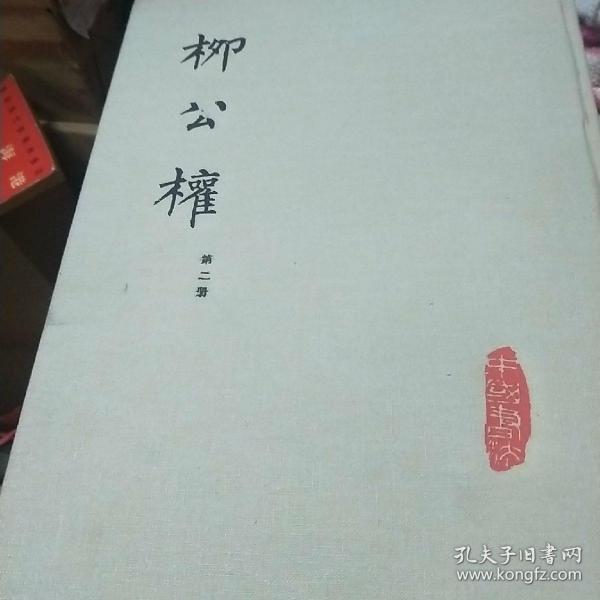 柳公權
第二册
中國書法
孔夫子旧書网
www.kongfz.com